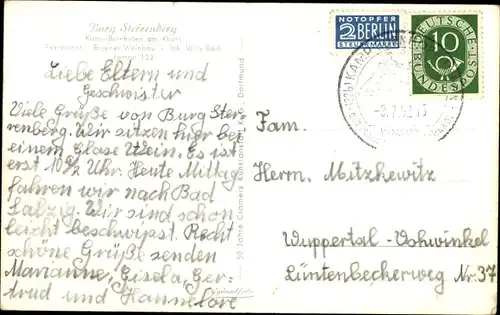 Burg Sterrenberg
Kamp-Bornhofen am Rhein
Eigener Weinbau - Inh. Willy Bach
Liebe Eltern und
Geschwister
Viele Grüße von Burg Ster-
renberg. Wir sitzen hier bei
einem Glase Wein. Es ist
erst 10½ Uhr. Heute Mittag
fahren wir nach Bad
Salzig. Wir sind schon
leicht beschwipst. Recht
schöne Grüße senden
Marianne, Gisela, Ger-
trud und Hannelore
50 Jahre Cramers Kunstanstalt Dortmund
NOTOPFER
2 BERLIN
STEUERMARKE
DEUTSCHE
BUNDESPOST
10
KAMP
Fam.
Herrn. Mitzkewitz
Wuppertal-Vohwinkel
Lüntenbeckerweg Nr. 37